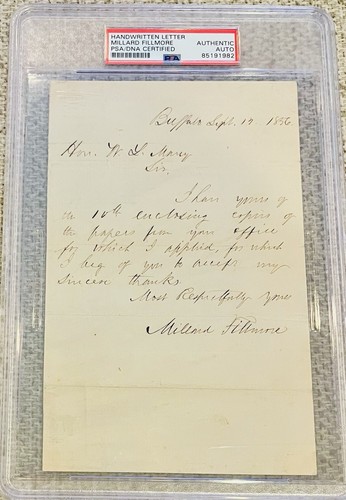 HANDWRITTEN LETTER
MILLARD FILLMORE
PSA/DNA CERTIFIED
AUTHENTIC
AUTO
PSA
85191982
Buffalo Sept. 19 1856
Hon. W L. Marcy
Sir.
I have yours of
the 10th enclosing copies of
the papers from your office
for which I applied, for which
I beg of you to accept my
sincere thanks
Most Respectfully yours
Millard Fillmore